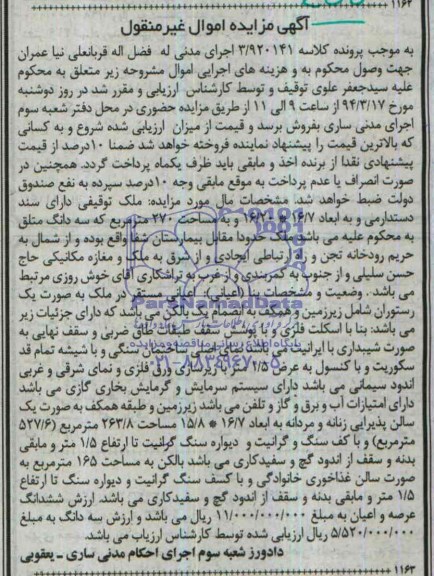 ۱۱۶۲
آگهی مزایده اموال غیرمنقول
به موجب پرونده کلاسه ۳/۹۲۰۱۴۱ اجرای مدنی له فضل اله قربانعلی نیا عمران
جهت وصول محکوم به و هزینه های اجرایی اموال مشروحه زیر متعلق به محکوم
علیه سیدجعفر علوی توقیف و توسط کارشناس ارزیابی و مقرر شد در روز دوشنبه
مورخ ۹۴/۳/۱۷ از ساعت ۹ الی ۱۱ از طریق مزایده حضوری در محل دفتر شعبه سوم
اجرای مدنی ساری بفروش برسد و قیمت از میزان ارزیابی شده شروع و به کسانی
که بالاترین قیمت را پیشنهاد نماینده فروخته خواهد شد ضمنا ۱۰درصد از قیمت
پیشنهادی نقدا از برنده اخذ و مابقی باید ظرف یکماه پرداخت گردد. همچنین در
صورت انصراف یا عدم پرداخت به موقع مابقی وجه ۱۰درصد سپرده به نفع صندوق
دولت ضبط خواهد شد. مشخصات مال مورد مزایده: ملک توقیفی دارای سند
دستدارمی و به ابعاد ۱۶/۷ و به مساحت ۲۷۰ مترمربع که سه دانگ متلق
به محکوم علیه می باشد ملک حدودا مقابل بیمارستان شفا واقع بوده و از شمال به
حریم رودخانه تجن و راه ارتباطی ایجادی و از شرق به ملک و مغازه مکانیکی حاج
حسن سلیلی و از جنوب به کمربندی و از غرب به تراشکاری آقای خوش روزی مرتبط
می باشد. وضعیت و مشخصات بنا (اعیانی): اعیانی مستقر در ملک به صورت یک
رستوران شامل زیرزمین و همکف به انضمام یک بالکن می باشد که دارای جزئیات زیر
می باشد: بنا با اسکلت فلزی و با پوشش سقف طبقات طاق ضربی و سقف نهایی به
صورت شیبداری با ایرانیت می باشد نمای اصلی ساختمان سنگی و با شیشه تمام قد
سکوریت و با کنسول به عرض ۱/۵ ورق فلزی و نمای شرقی و غربی
اندود سیمانی می باشد دارای سیستم سرمایش و گرمایش بخاری گازی می باشد
دارای امتیازات آب و برق و گاز و تلفن می باشد زیرزمین و طبقه همکف به صورت یک
سالن پذیرایی زنانه و مردانه به ابعاد ۱۶/۷ * ۱۵/۸ مساحت ۲۶۳/۸ مترمربع (۵۲۷/۶
مترمربع) و با کف سنگ و گرانیت و دیواره سنگ گرانیت تا ارتفاع ۱/۵ متر و مابقی
بدنه و سقف از اندود گچ و سفیدکاری می باشد بالکن به مساحت ۱۶۵ مترمربع به
صورت سالن غذاخوری خانوادگی و با کسف سنگ گرانیت و دیواره سنگ تا ارتفاع
۱/۵ متر و مابقی بدنه و سقف از اندود گچ و سفیدکاری می باشد. ارزش ششدانگ
عرصه و اعیان به مبلغ ۱۱/۰۰۰/۰۰۰/۰۰۰ ریال می باشد و ارزش سه دانگ به مبلغ
۵/۵۲۰/۰۰۰/۰۰۰ ریال ارزیابی شده توسط کارشناس ارزیاب می باشد.
دادورز شعبه سوم اجرای احکام مدنی ساری ـ یعقوبی
۱۱۶۳
ParsNamadData
پایگاه اطلاع رسانی مناقصه و مزایده
۰۲۱-۸۸۳۴۹۶۷۰-۵